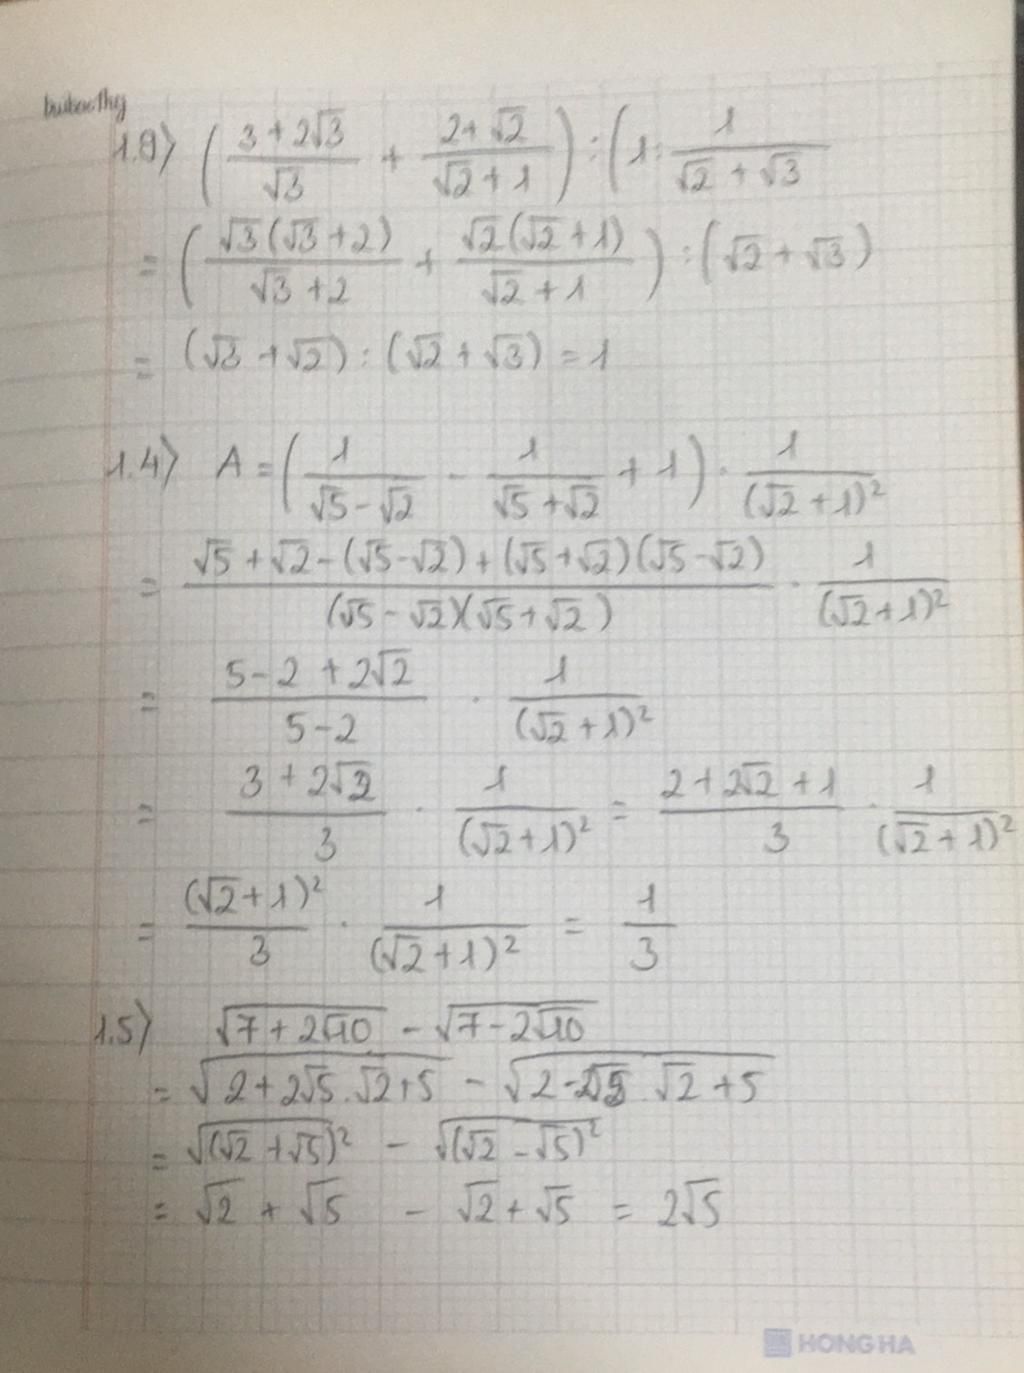 buibaothy
1.9) (3+2√3/√3 + 2+√2/√2+1) : (1: 1/√2+√3
= (√3(√3+2)/√3+2 + √2(√2+1)/√2+1) : (√2+√3)
= (√3+√2) : (√2+√3) = 1
1.4) A = (1/√5-√2 - 1/√5+√2 + 1) . 1/(√2+1)²
= √5+√2-(√5-√2)+(√5+√2)(√5-√2)/(√5-√2)(√5+√2) . 1/(√2+1)²
= 5-2+2√2/5-2 . 1/(√2+1)²
= 3+2√2/3 . 1/(√2+1)² = 2+2√2+1/3 . 1/(√2+1)²
= (√2+1)²/3 . 1/(√2+1)² = 1/3
1.5) √7+2√10 - √7-2√10
= √2+2√5.√2+5 - √2-2√5.√2+5
= √(√2+√5)² - √(√2-√5)²
= √2 + √5 - √2+√5 = 2√5
HONG HA